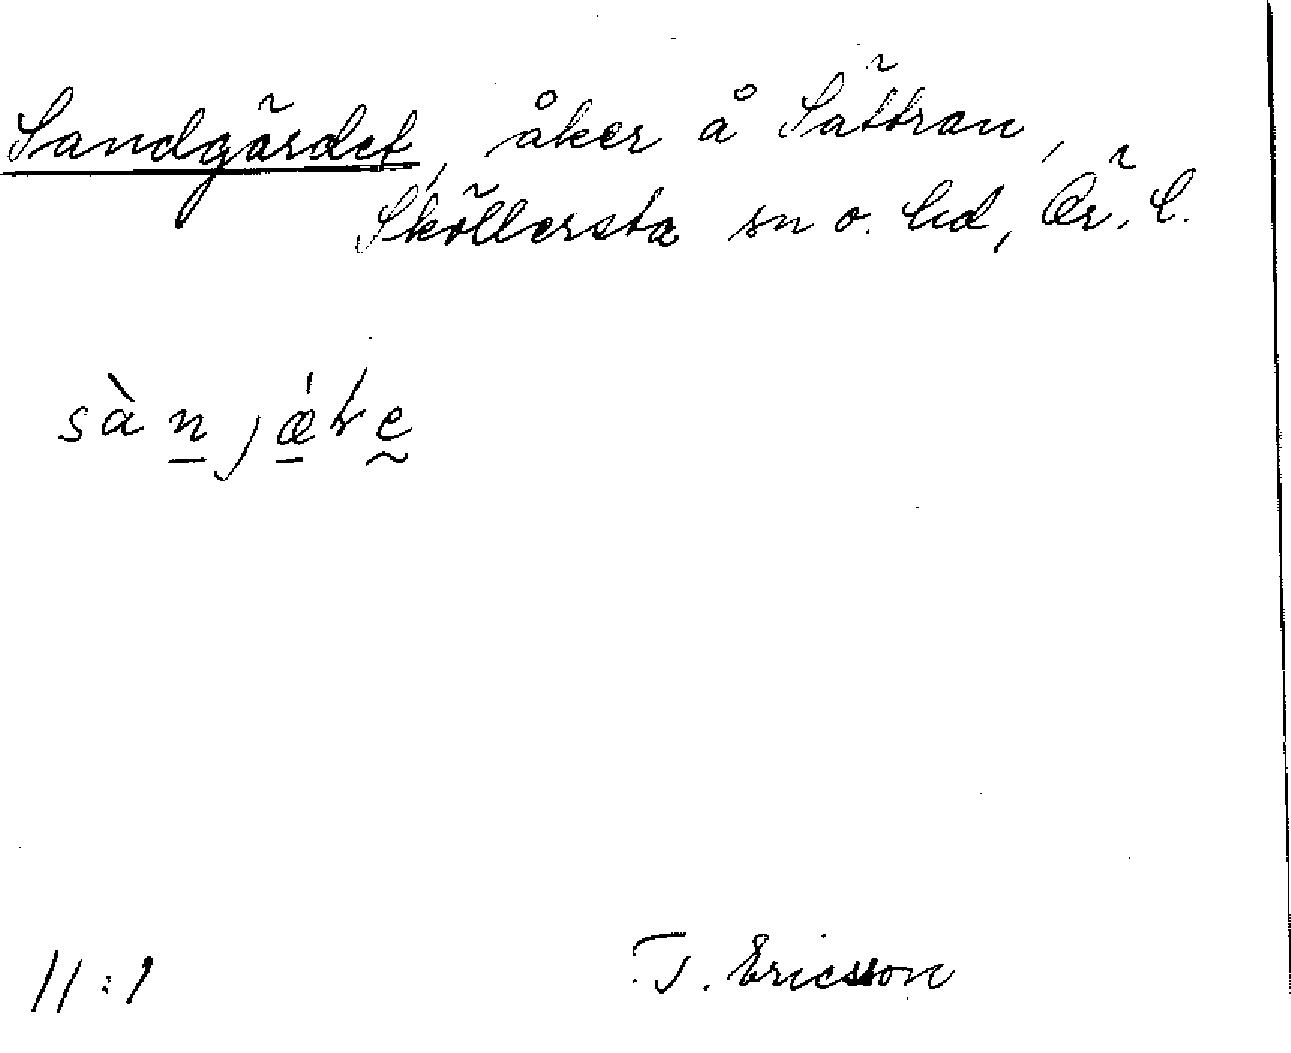 Sandgärdet, åker å Sättran,
Sköllersta sn o. hd, Ör. l.
sàn jǽṭe
11:1
T. Ericsson